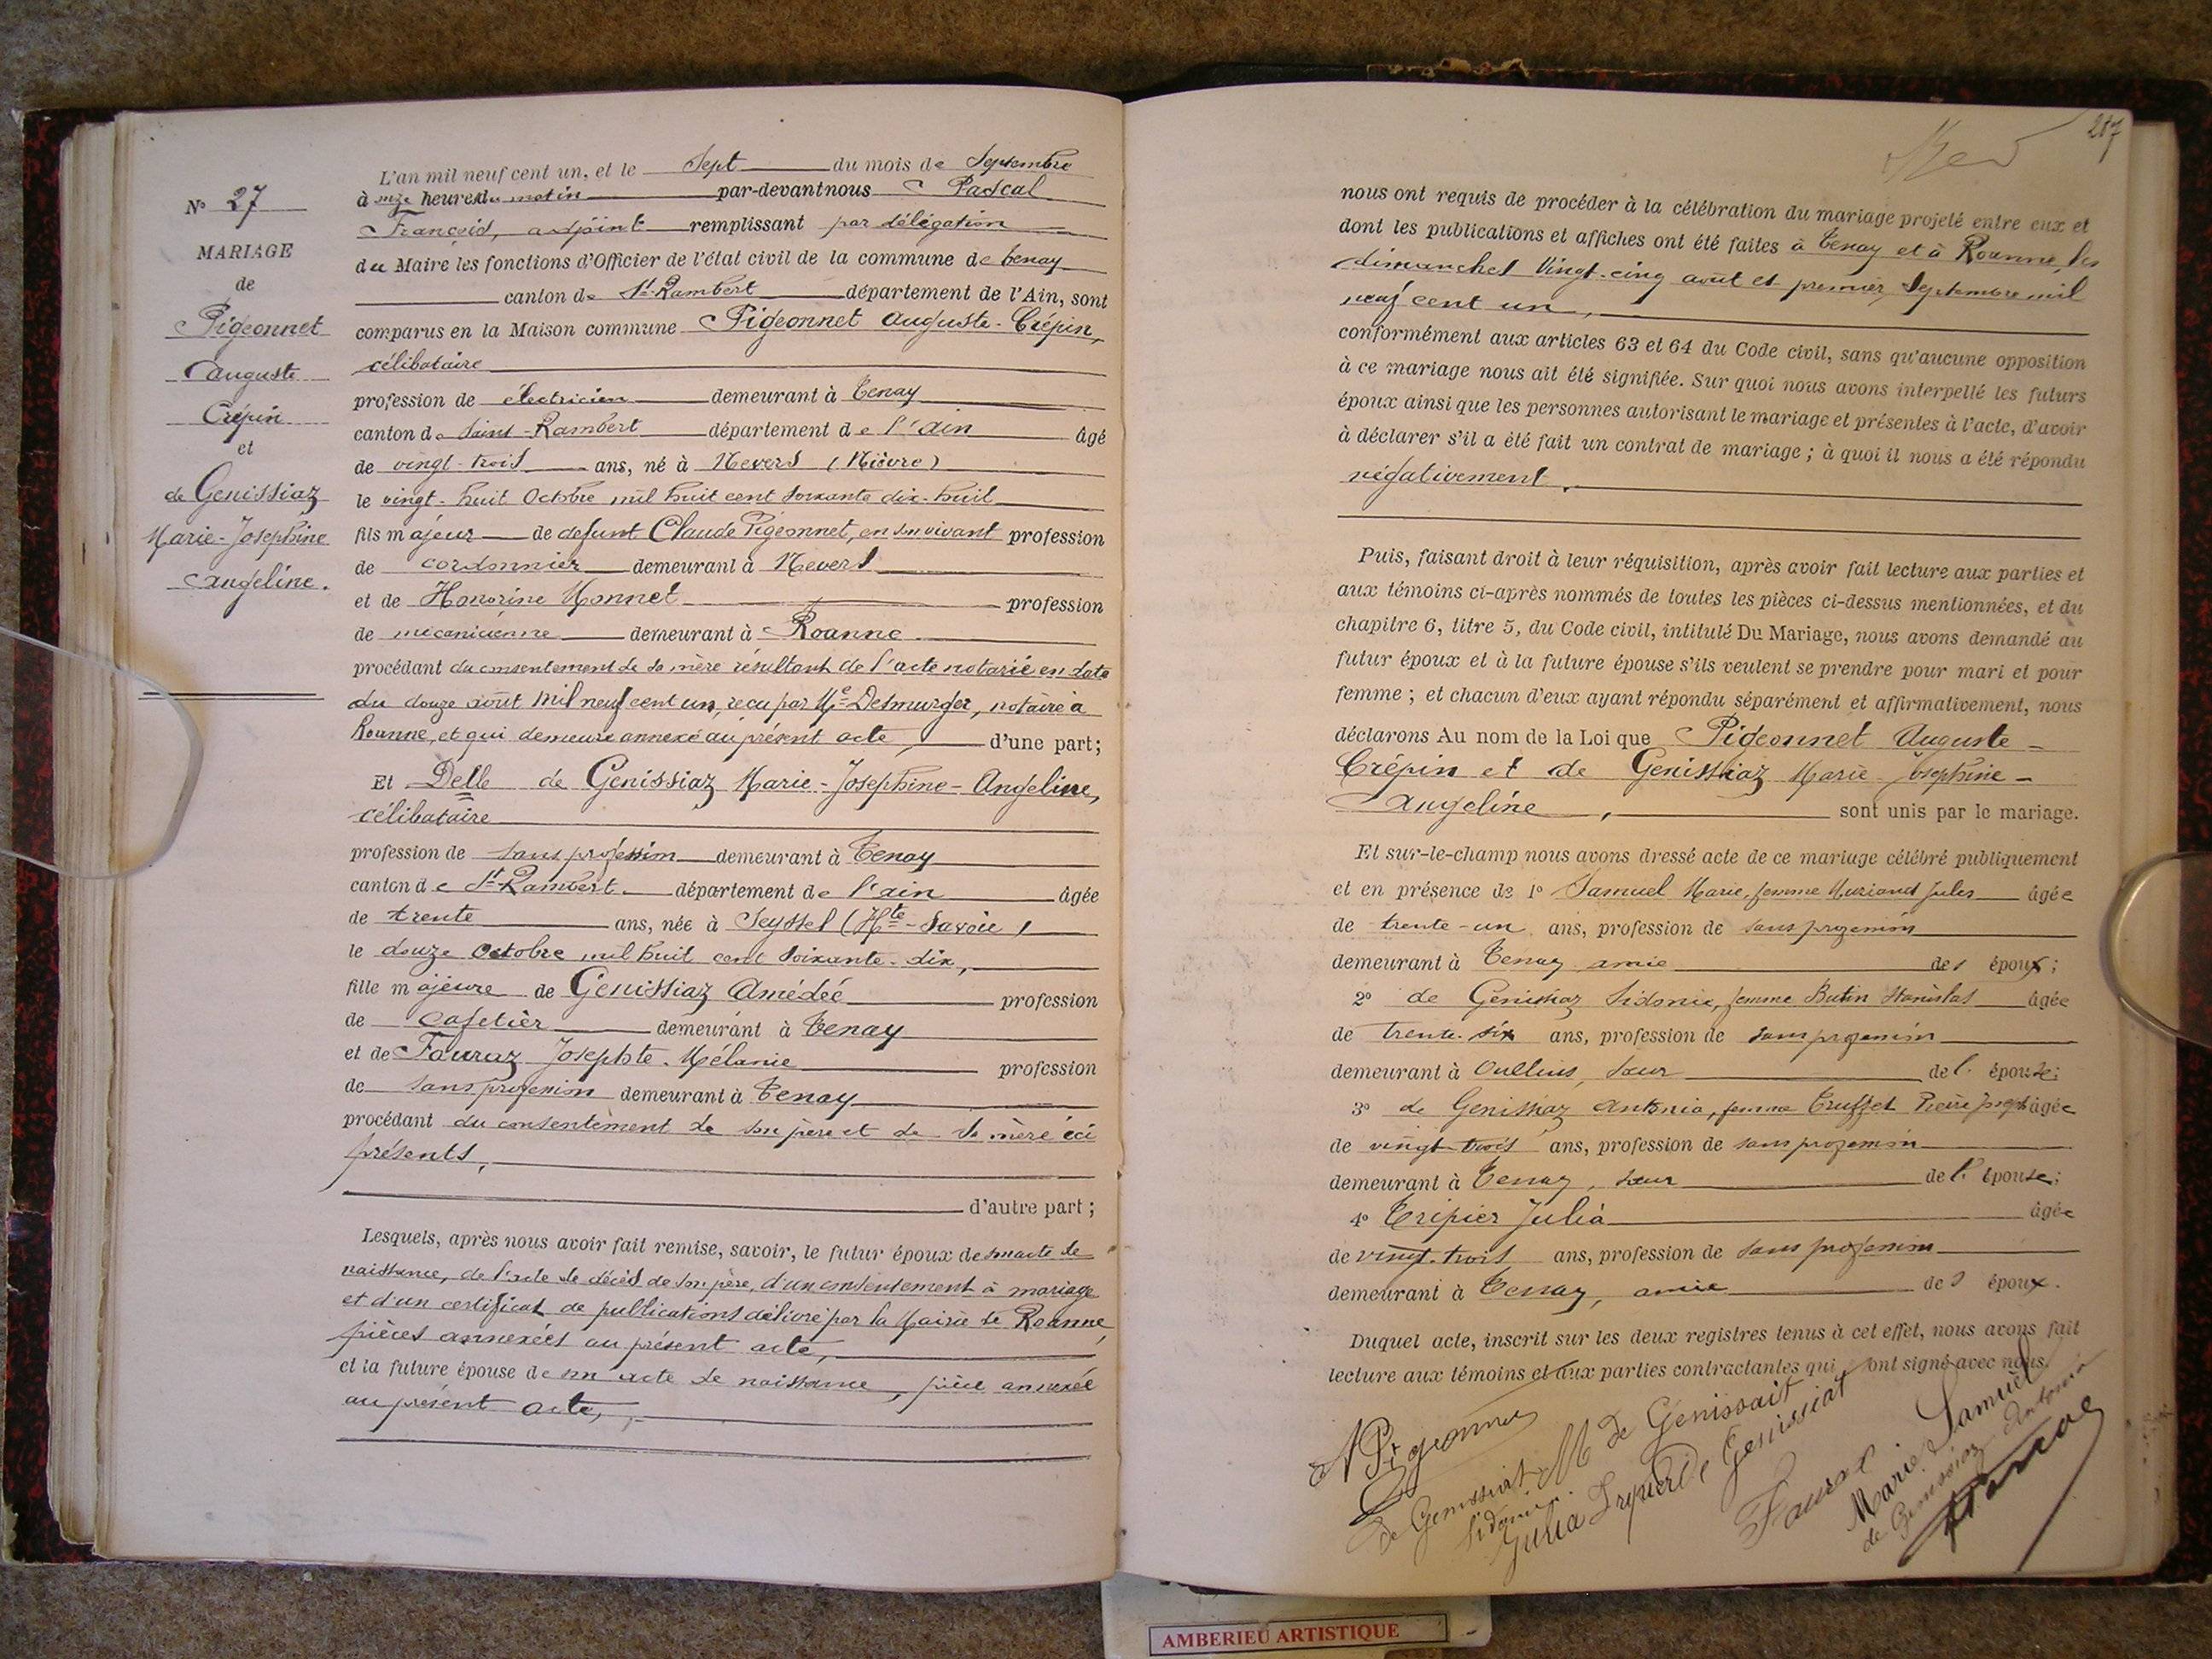 N° 27
MARIAGE
de
Pigeonnet
Auguste
Crépin
et
de Genissiaz
Marie-Josephine
Angeline.
L'an mil neuf cent un, et le Sept du mois de Septembre
à onze heures du matin par-devant nous Pascal
François, adjoint remplissant par délégation
du Maire les fonctions d'Officier de l'état civil de la commune de Tenay
canton de St-Rambert département de l'Ain, sont
comparus en la Maison commune Pigeonnet Auguste-Crépin,
célibataire
profession de électricien demeurant à Tenay
canton de Saint-Rambert département de l'Ain âgé
de vingt-trois ans, né à Nevers (Nièvre)
le vingt-huit Octobre mil huit cent soixante dix-huit
fils majeur de defunt Claude Pigeonnet, en son vivant profession
de cordonnier demeurant à Nevers
et de Honorine Monnet profession
de mécanicienne demeurant à Roanne
procédant du consentement de sa mère résultant de l'acte notarié en date
du douze août mil neuf cent un, reçu par Me Desmurger, notaire à
Roanne, et qui demeure annexé au présent acte, d'une part;
Et Delle de Genissiaz Marie-Josephine-Angeline,
célibataire
profession de sans profession demeurant à Tenay
canton de St-Rambert département de l'Ain âgée
de trente ans, née à Seyssel (Hte-Savoie)
le douze Octobre mil huit cent soixante-dix,
fille majeure de Genissiaz Amédée profession
de Cafetier demeurant à Tenay
et de Fauraz Josephte-Mélanie profession
de sans profession demeurant à Tenay
procédant du consentement de son père et de sa mère ici
présents,
d'autre part;
Lesquels, après nous avoir fait remise, savoir, le futur époux de son acte de
naissance, de l'acte de décès de son père, d'un consentement à mariage
et d'un certificat de publications délivré par la Mairie de Roanne,
pièces annexées au présent acte,
et la future épouse de son acte de naissance, pièce annexée
au présent acte,
217
nous ont requis de procéder à la célébration du mariage projeté entre eux et
dont les publications et affiches ont été faites à Tenay et à Roanne, les
dimanches vingt-cinq août et premier Septembre mil
neuf cent un,
conformément aux articles 63 et 64 du Code civil, sans qu'aucune opposition
à ce mariage nous ait été signifiée. Sur quoi nous avons interpellé les futurs
époux ainsi que les personnes autorisant le mariage et présentes à l'acte, d'avoir
à déclarer s'il a été fait un contrat de mariage; à quoi il nous a été répondu
négativement.
Puis, faisant droit à leur réquisition, après avoir fait lecture aux parties et
aux témoins ci-après nommés de toutes les pièces ci-dessus mentionnées, et du
chapitre 6, titre 5, du Code civil, intitulé Du Mariage, nous avons demandé au
futur époux et à la future épouse s'ils veulent se prendre pour mari et pour
femme; et chacun d'eux ayant répondu séparément et affirmativement, nous
déclarons Au nom de la Loi que Pigeonnet Auguste-
Crépin et de Genissiaz Marie-Josephine-
Angeline, sont unis par le mariage.
Et sur-le-champ nous avons dressé acte de ce mariage célébré publiquement
et en présence de 1° Samuel Marie, femme Muriand Jules âgée
de trente-un ans, profession de sans profession
demeurant à Tenay amie des époux;
2° de Genissiaz Sidonie, femme Butin Stanislas âgée
de trente-six ans, profession de sans profession
demeurant à Oullins, sœur de l' épouse;
3° de Genissiaz Antonia, femme Truffet Pierre Joseph âgée
de vingt-trois ans, profession de sans profession
demeurant à Tenay, sœur de l' épouse;
4° Tripier Julia âgée
de vingt-trois ans, profession de sans profession
demeurant à Tenay, amie des époux.
Duquel acte, inscrit sur les deux registres tenus à cet effet, nous avons fait
lecture aux témoins et aux parties contractantes qui ont signé avec nous.
A Pigeonnet
M de Genissait
de Genissiat
Sidonie
Julia
de Genissiat
Fauraz
Marie Samuel
de Genissiaz Antonia
Pascal
AMBERIEU ARTISTIQUE